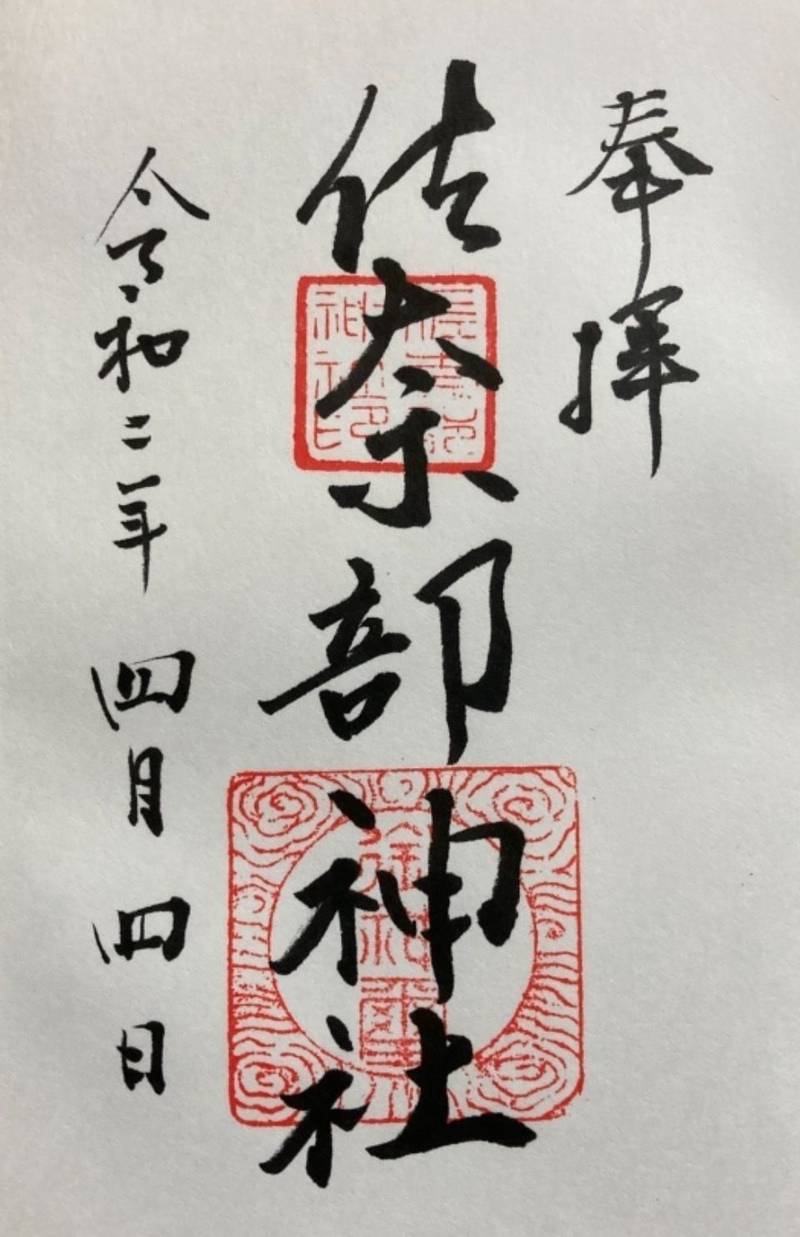 奉拝
佐奈部神社
令和二年 四月 四日